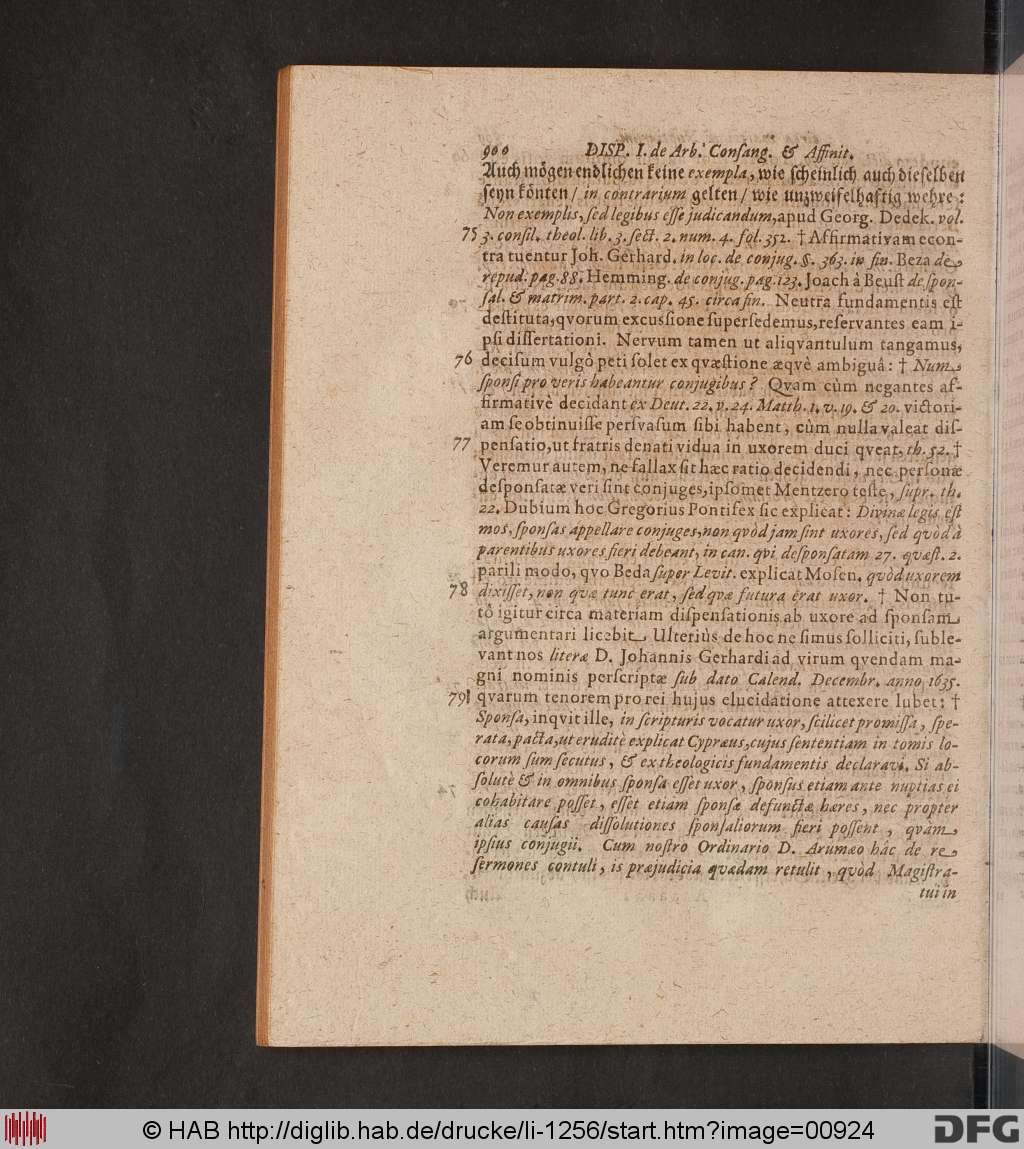 900 DISP. I. de Arb. Conſang. & Affinit.
Auch mögen endlichen keine exempla, wie ſcheinlich auch dieſelben
ſeyn könten / in contrarium gelten / wie unzweifelhaftig wehre:
Non exemplis, ſed legibus eſſe judicandum, apud Georg. Dedek. vol.
75 3. conſil. theol. lib. 3. ſect. 2. num. 4. fol. 352. † Affirmativam econ-
tra tuentur Joh. Gerhard. in loc. de conjug. §. 363. in fin. Beza de
repud. pag. 88. Hemming. de conjug. pag. 123. Joach à Beuſt de ſpon-
ſal. & matrim. part. 2. cap. 45. circa fin. Neutra fundamentis eſt
deſtituta, qvorum excuſſione ſuperſedemus, reſervantes eam i-
pſi diſſertationi. Nervum tamen ut aliqvantulum tangamus,
76 deciſum vulgò peti ſolet ex qvæſtione æqvè ambiguâ: † Num
ſponſi pro veris habeantur conjugibus? Qvam cùm negantes af-
firmativè decidant ex Deut. 22. v. 24. Matth. 1. v. 19. & 20. victori-
am ſe obtinuiſſe perſvaſum ſibi habent, cùm nulla valeat diſ-
77 penſatio, ut fratris denati vidua in uxorem duci qveat. th. 52. †
Veremur autem, ne fallax ſit hæc ratio decidendi, nec perſonæ
deſponſatæ veri ſint conjuges, ipſomet Mentzero teſte, ſupr. th.
22. Dubium hoc Gregorius Pontifex ſic explicat: Divinæ legis eſt
mos, ſponſas appellare conjuges, non qvòd jam ſint uxores, ſed qvòd à
parentibus uxores fieri debeant, in can. qvi deſponſatam 27. qvæſt. 2.
parili modo, qvo Beda ſuper Levit. explicat Moſen. qvòd uxorem
78 dixiſſet, non qvæ tunc erat, ſed qvæ futura erat uxor. † Non tu-
tô igitur circa materiam diſpenſationis ab uxore ad ſponſam
argumentari licebit. Ulteriùs de hoc ne ſimus ſolliciti, ſuble-
vant nos literæ D. Johannis Gerhardi ad virum qvendam ma-
gni nominis perſcriptæ ſub dato Calend. Decembr. anno 1635.
79 qvarum tenorem pro rei hujus elucidatione attexere lubet: †
Sponſa, inqvit ille, in ſcripturis vocatur uxor, ſcilicet promiſſa, ſpe-
rata, pacta, ut eruditè explicat Cypræus, cujus ſententiam in tomis lo-
corum ſum ſecutus, & ex theologicis fundamentis declaravi. Si ab-
ſolutè & in omnibus ſponſa eſſet uxor, ſponſus etiam ante nuptias ei
cohabitare poſſet, eſſet etiam ſponſæ defunctæ hæres, nec propter
alias cauſas diſſolutiones ſponſaliorum fieri poſſent, qvam
ipſius conjugii. Cum noſtro Ordinario D. Arumæo hâc de re
ſermones contuli, is præjudicia qvædam retulit, qvòd Magiſtra-
tui in
© HAB http://diglib.hab.de/drucke/li-1256/start.htm?image=00924
DFG